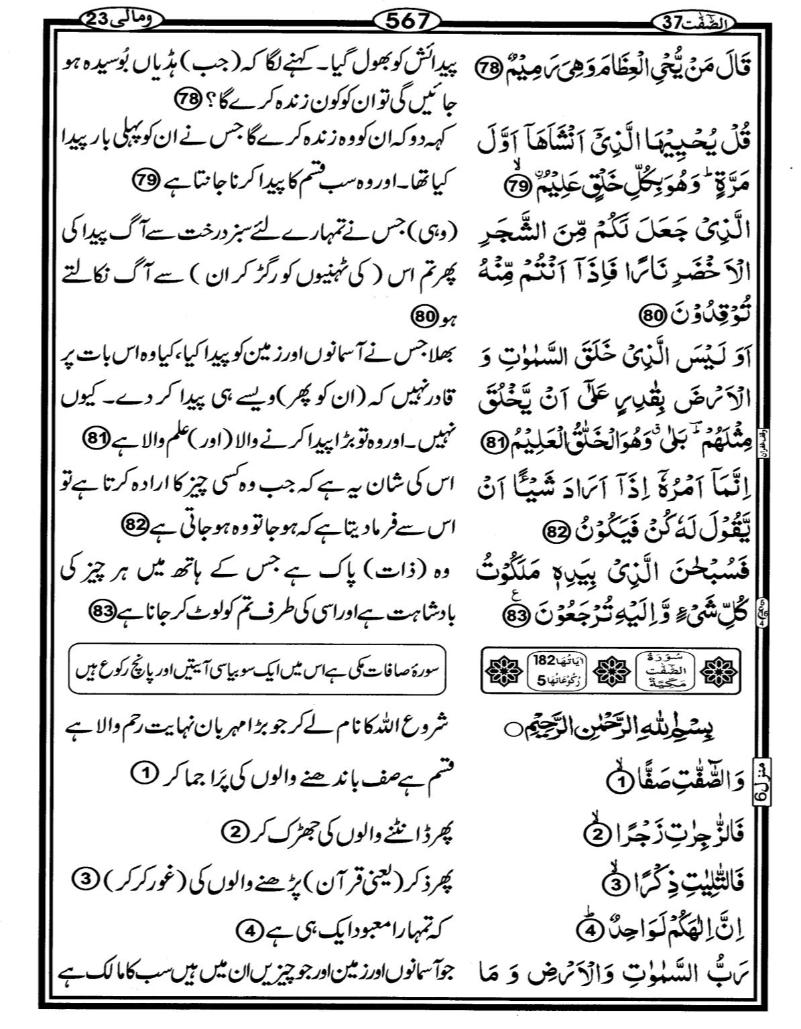 الصّٰفّٰت 37
567
ومالی 23
قَالَ مَنْ يُّحْیِ الْعِظَامَ وَهِیَ رَمِيْمٌ 78
پیدائش کو بھول گیا۔ کہنے لگا کہ (جب) ہڈیاں بُوسیدہ ہو
جائیں گی تو ان کو کون زندہ کرے گا؟ 78
قُلْ يُحْيِيْهَا الَّذِیْۤ اَنْشَاَهَاۤ اَوَّلَ
مَرَّةٍ ؕ وَهُوَ بِكُلِّ خَلْقٍ عَلِيْمُ ۙ 79
کہہ دو کہ ان کو وہ زندہ کرے گا جس نے ان کو پہلی بار پیدا
کیا تھا۔ اور وہ سب قسم کا پیدا کرنا جانتا ہے 79
الَّذِیْ جَعَلَ لَكُمْ مِّنَ الشَّجَرِ
الْاَخْضَرِ نَارًا فَاِذَاۤ اَنْتُمْ مِّنْهُ
تُوْقِدُوْنَ 80
(وہی) جس نے تمہارے لئے سبز درخت سے آگ پیدا کی
پھر تم اس (کی ٹہنیوں کو رگڑ کر ان) سے آگ نکالتے
ہو 80
اَوَ لَيْسَ الَّذِیْ خَلَقَ السَّمٰوٰتِ وَ
الْاَرْضَ بِقٰدِرٍ عَلٰۤی اَنْ يَّخْلُقَ
مِثْلَهُمْ ؕ بَلٰی ۗ وَهُوَ الْخَلّٰقُ الْعَلِيْمُ 81
بھلا جس نے آسمانوں اور زمین کو پیدا کیا، کیا وہ اس بات پر
قادر نہیں کہ (ان کو پھر) ویسے ہی پیدا کر دے۔ کیوں
نہیں۔ اور وہ تو بڑا پیدا کرنے والا (اور) علم والا ہے 81
اِنَّمَاۤ اَمْرُهٗۤ اِذَاۤ اَرَادَ شَيْـًٔا اَنْ
يَّقُوْلَ لَهٗ كُنْ فَيَكُوْنُ 82
اس کی شان یہ ہے کہ جب وہ کسی چیز کا ارادہ کرتا ہے تو
اس سے فرما دیتا ہے کہ ہو جا تو وہ ہو جاتی ہے 82
فَسُبْحٰنَ الَّذِیْ بِيَدِهٖ مَلَكُوْتُ
كُلِّ شَیْءٍ وَّاِلَيْهِ تُرْجَعُوْنَ 83
وہ (ذات) پاک ہے جس کے ہاتھ میں ہر چیز کی
بادشاہت ہے اور اسی کی طرف تم کو لوٹ کر جانا ہے 83
سُوْرَةُ
الصّٰفّٰت
مَكِّيَّةٌ
اٰيَاتُهَا 182
رُكُوْعَاتُهَا 5
سورۂ صافات مکی ہے اس میں ایک سو بیاسی آیتیں اور پانچ رکوع ہیں
بِسْمِ اللهِ الرَّحْمٰنِ الرَّحِيْمِ
شروع اللہ کا نام لے کر جو بڑا مہربان نہایت رحم والا ہے
وَالصّٰٓفّٰتِ صَفًّا ۙ 1
قسم ہے صف باندھنے والوں کی پَرا جما کر 1
فَالزّٰجِرٰتِ زَجْرًا ۙ 2
پھر ڈانٹنے والوں کی جھڑک کر 2
فَالتّٰلِيٰتِ ذِكْرًا ۙ 3
پھر ذکر (یعنی قرآن) پڑھنے والوں کی (غور کر کر) 3
اِنَّ اِلٰهَكُمْ لَوَاحِدٌ ؕ 4
کہ تمہارا معبود ایک ہی ہے 4
رَبُّ السَّمٰوٰتِ وَالْاَرْضِ وَ مَا
جو آسمانوں اور زمین اور جو چیزیں ان میں ہیں سب کا مالک ہے
منزل 6